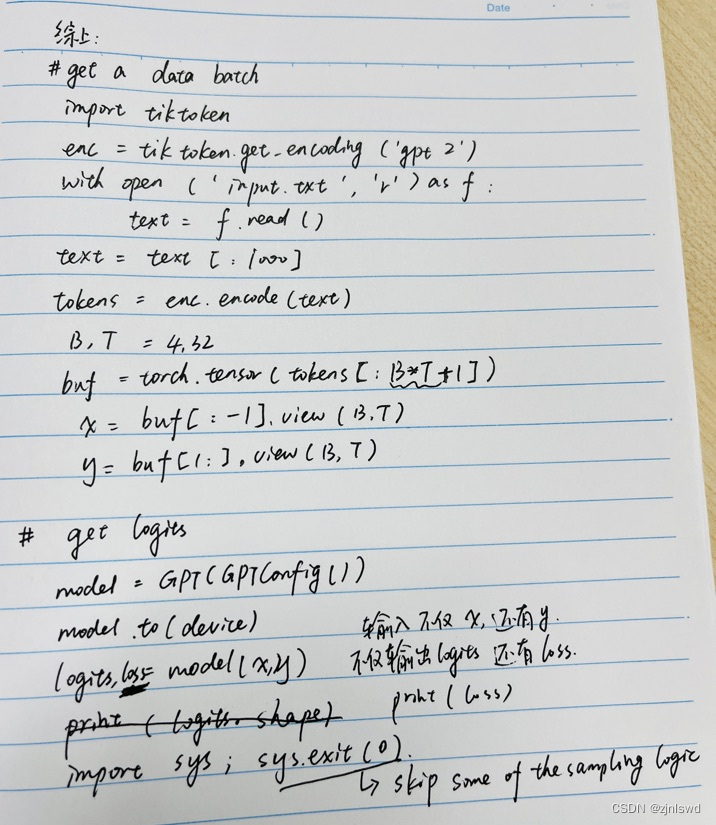 Date
综上:
# get a data batch
import tiktoken
enc = tiktoken.get_encoding ('gpt 2')
with open ('input.txt', 'r') as f :
text = f.read ()
text = text [ : 1000]
tokens = enc. encode (text)
B, T = 4, 32
buf = torch. tensor ( tokens [ : B*T+1] )
x = buf [ : -1]. view (B,T)
y = buf [1:] . view (B, T)
# get logits
model = GPT(GPTConfig())
model .to (device)
输入不仅 x, 还有 y.
logits, loss= model (x,y)
不仅输出 logits 还有 loss.
print ( logits. shape)
print ( loss)
import sys ; sys.exit (0).
↳ skip some of the sampling logic
CSDN @zjnlswd